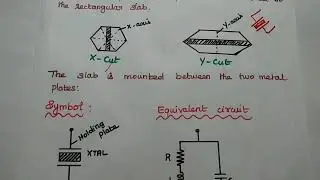 the rectangular slab.
x-axis
y-axis
X-Cut
Y-Cut
The slab is mounted between the two metal
plates:
Symbol:
Equivalent circuit
Holding plate
XTAL
R